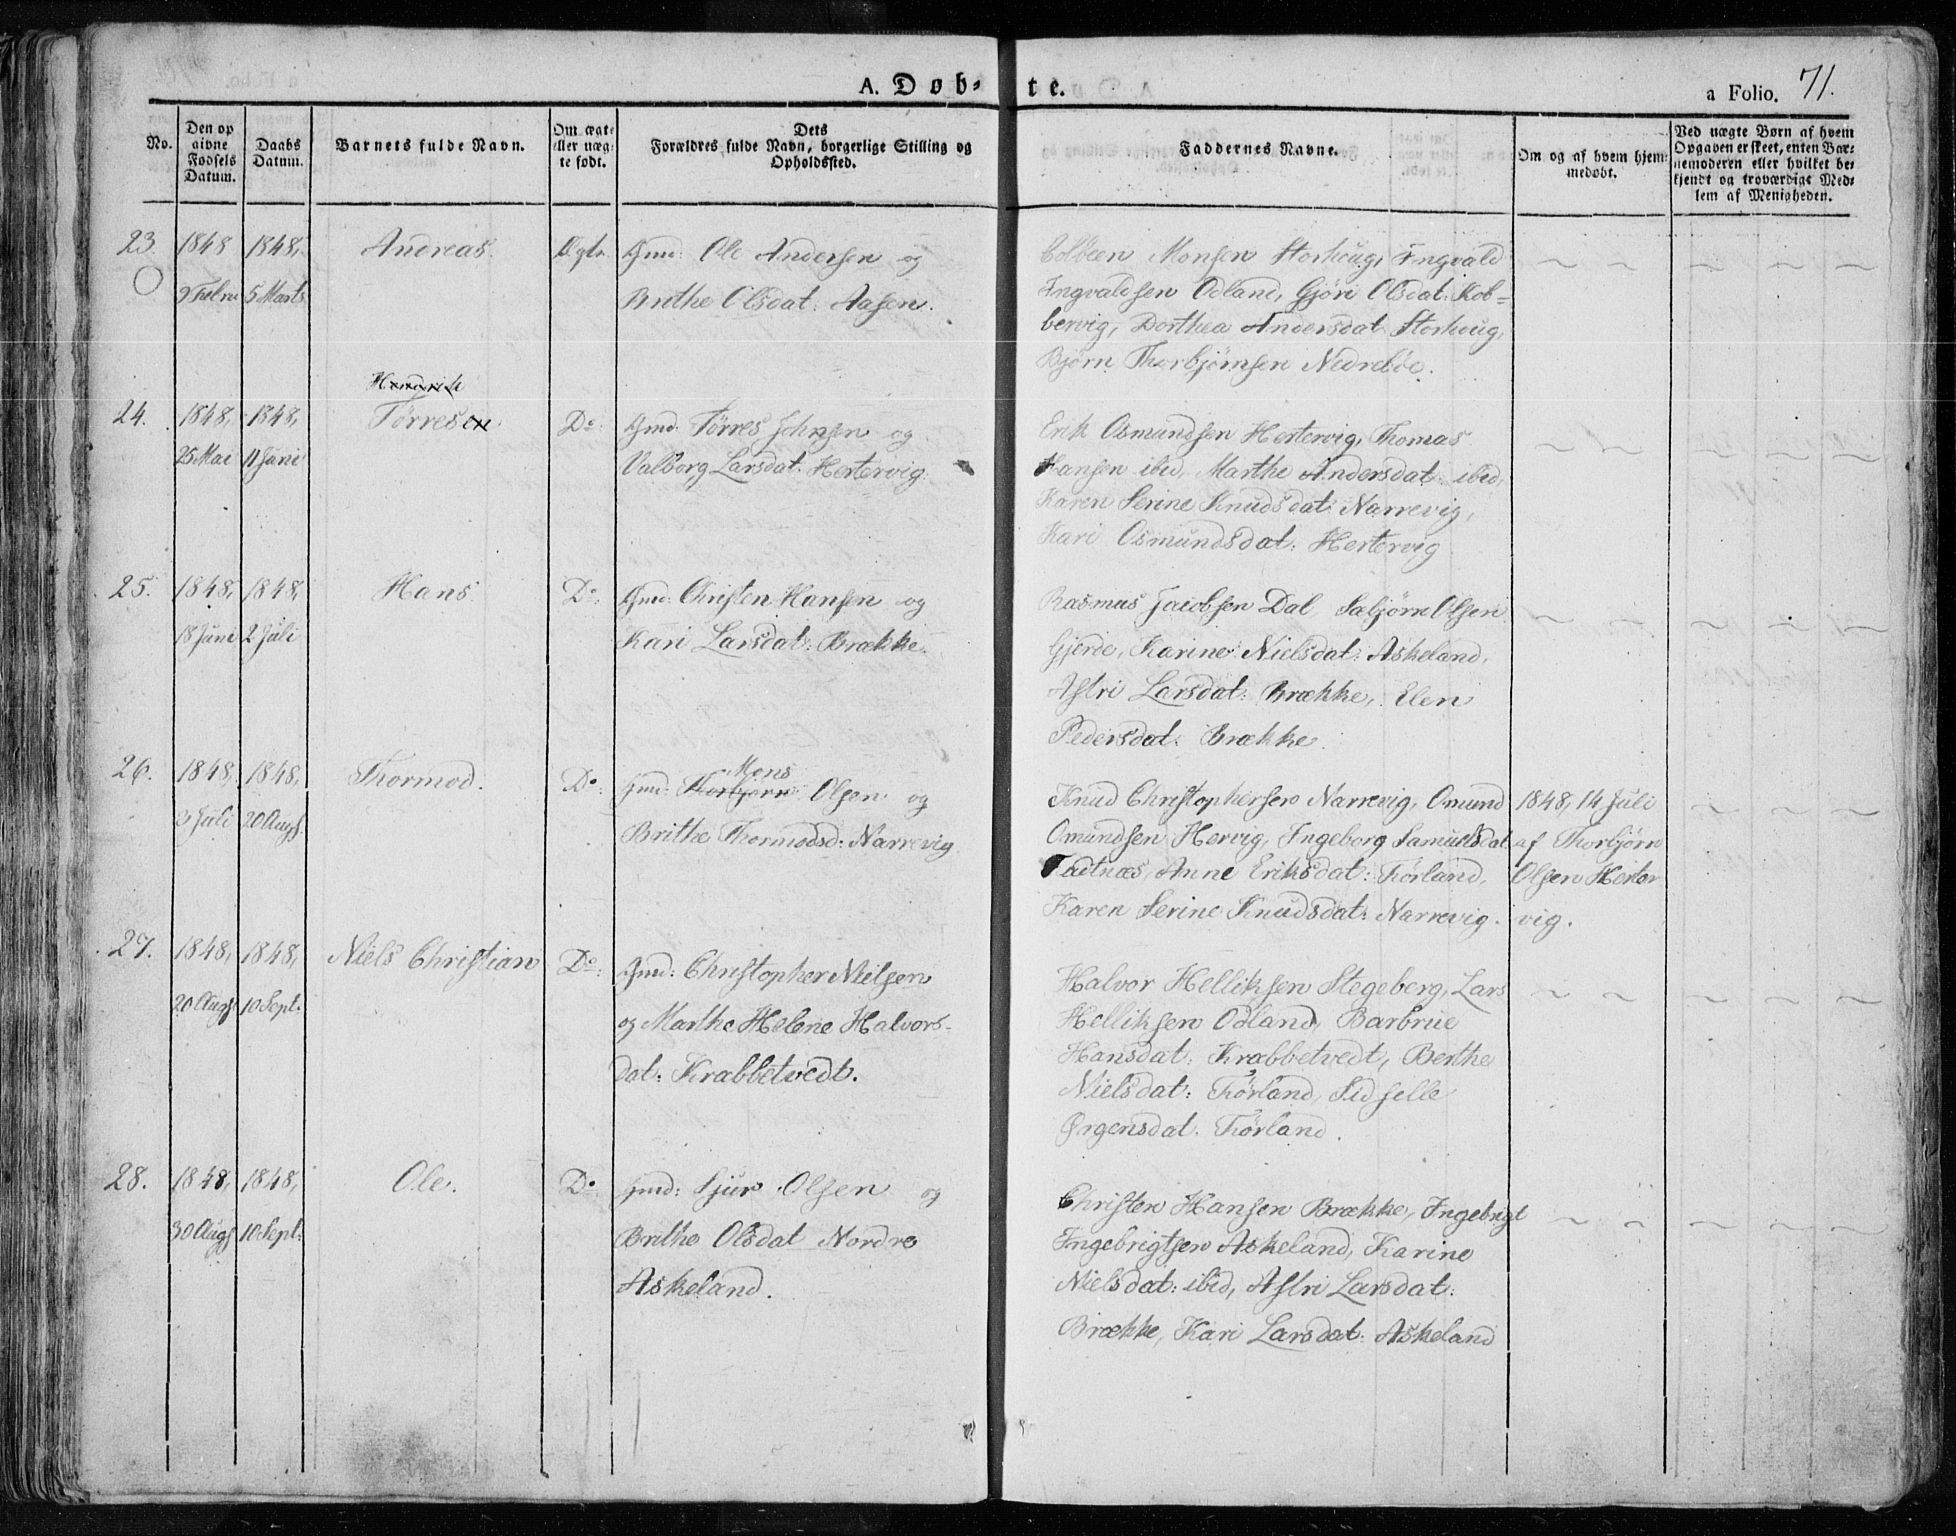 A. Døb-te.
a Folio. 71.
No.
Den op
givne
Fødsels
Datum.
Daabs
Datum.
Barnets fulde Navn.
Om ægte
eller uæg-
te født.
Dets
Forældres fulde Navn, borgerlige Stilling og
Opholdssted.
Faddernes Navne.
Om og af hvem hjem-
medøbt.
Ved uægte Børn af hvem
Opgaven er skeet, enten Bar-
nemoderen eller hvilket be-
kjendt og troværdigt Med-
lem af Menigheden.
23. 1848 1848, Andreas. Ægte. Gmd: Ole Andersen og
9 Febru 5 Marts Brithe Olsdat: Aasen.
Colbeen Monsen Storhoug, Ingvald
Ingvaldsen Odland, Gjøri Olsdat: Kob-
bervig, Dorthea Andersdat: Storhoug,
Bjørn Thorbjørnsen Nedrebøe.
Hendrik
24. 1848, 1848, Tørresen Do: Gmd: Tørres Johnsen og
25 Mai 11 Juni Valborg Larsdat: Hertervig.
Erik Osmundsen Hertervig, Thomas
Hansen ibid, Marthe Andersdat: ibid,
Karen Serine Knudsdat: Narrevig,
Kari Osmundsdat: Hertervig
25. 1848, 1848, Hans Do: Gmd: Christen Hansen og
18 Juni 2 Juli Kari Larsdat: Brække.
Rasmus Jacobsen Dal, Sæbjørn Olsen
Gjerde, Karine Nielsdat: Askeland,
Astri Larsdat: Brække, Elen
Pedersdat: Brække.
Mons
26. 1848, 1848, Thormod. Do: Gmd: Thorbjørn Olsen og
3 Juli 20 Augs Brithe Thormodsd: Narrevig
Knud Christophersen Narrevig, Omund 1848, 14 Juli
Omundsen Hervig, Ingeborg Samuelsdat af Thorbjørn
Tadtnæs, Anne Eriksdat: Førland, Olsen Herter
Karen Serine Knudsdat: Narrevig. vig.
27. 1848, 1848, Niels Christian Do: Gmd: Christopher Nielsen
20 Augs 10 Sept: og Marthe Helene Halvors-
dat: Krabbetvedt.
Halvor Helliksen Stegeberg, Lars
Helliksen Odland, Barbrue
Hansdat: Krabbetvedt, Berthe
Nielsdat: Førland, Sidselle
Ørgensdat: Førland.
28. 1848, 1848, Ole. Do: Gmd: Sjur Olsen og
30 Augs 10 Sept: Brithe Olsdat Nordre
Askeland.
Christen Hansen Brække, Ingebrigt
Ingebrigtsen Askeland, Karine
Nielsdat: ibid, Astri Larsdat:
Brække, Kari Larsdat: Askeland